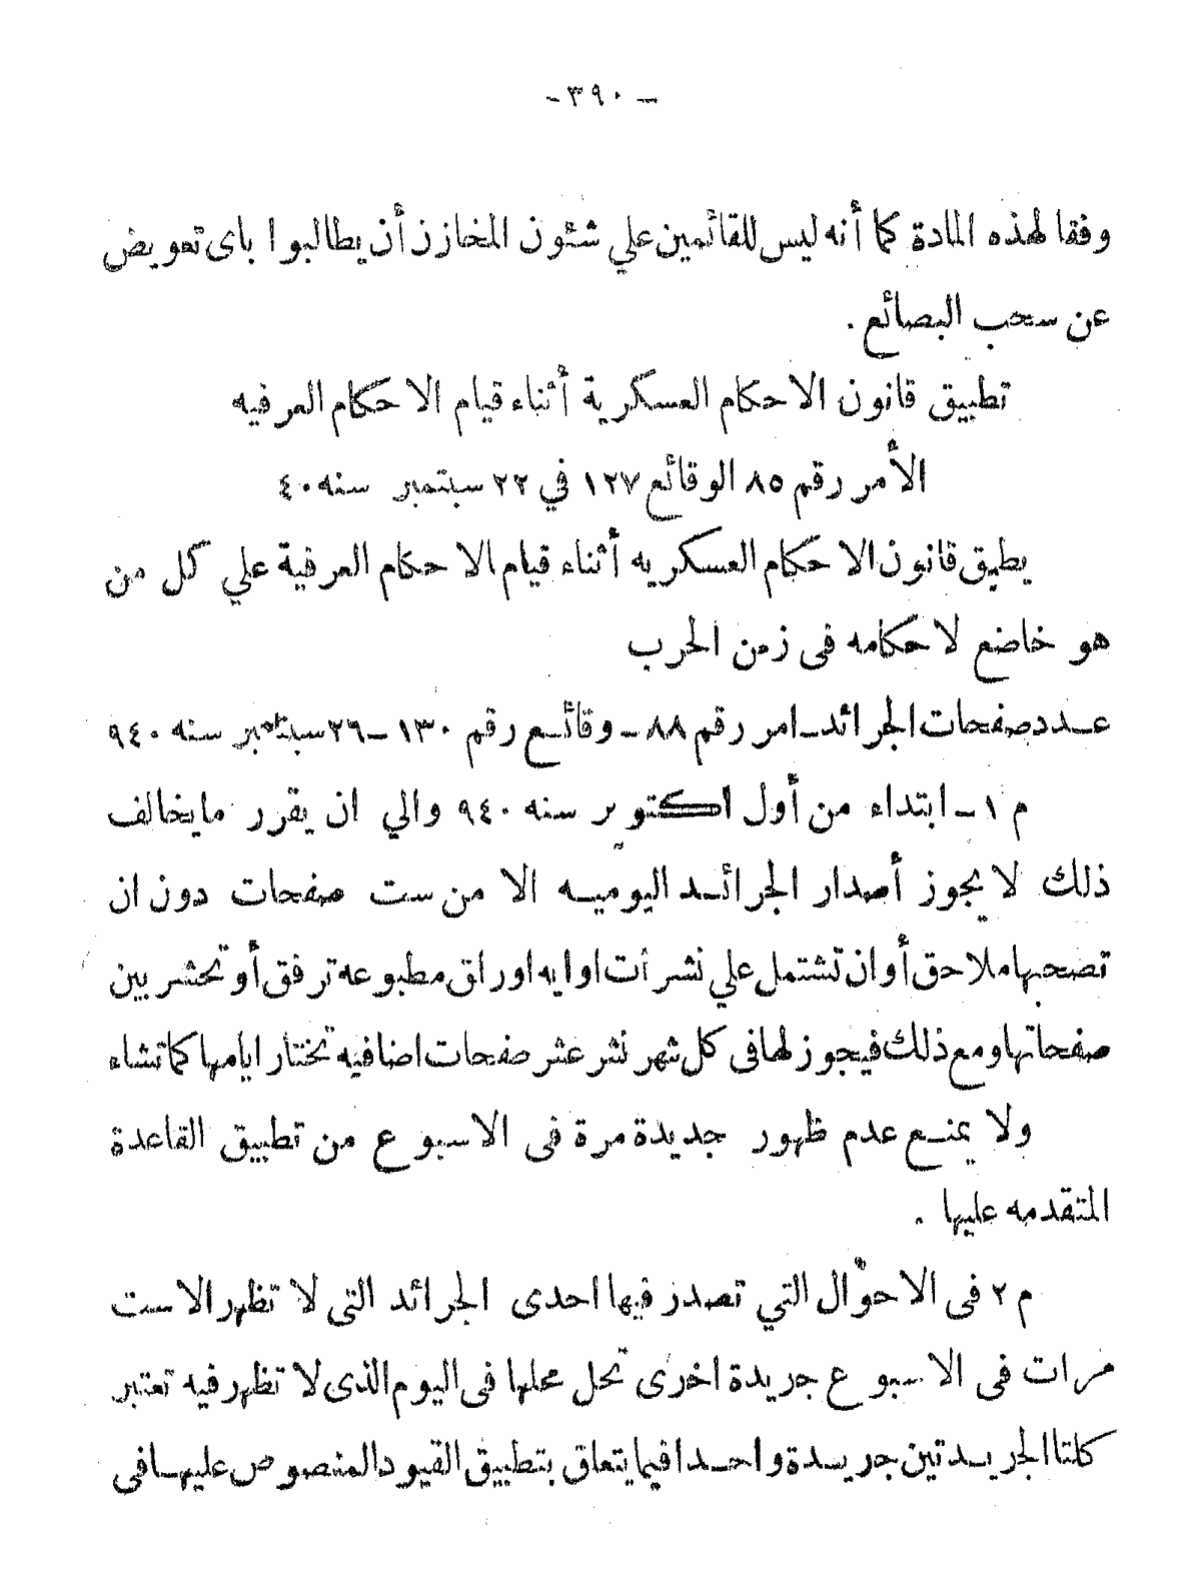 - ٣٩٠ -
وفقا لهذه المادة كما أنه ليس للقائمين علي شئون المخازن أن يطالبوا باى تعويض
عن سحب البصائع .
تطبيق قانون الاحكام العسكرية أثناء قيام الاحكام العرفيه
الأمر رقم ٨٥ الوقائع ١٢٧ في ٢٢ سبتمبر سنه ٤٠
يطبق قانون الاحكام العسكريه أثناء قيام الاحكام العرفية علي كل من
هو خاضع لاحكامه فى زمن الحرب
عدد صفحات الجرائد ـ امر رقم ٨٨ ـ وقائع رقم ١٣٠ ـ ٢٦ سبتمبر سنه ٩٤٠
م ١ ـ ابتداء من أول اكتوبر سنه ٩٤٠ والي ان يقرر مايخالف
ذلك لا يجوز أصدار الجرائد اليوميه الا من ست صفحات دون ان
تصحبها ملاحق أو ان تشتمل علي نشرات او ايه اوراق مطبوعه ترفق أو تحشر بين
صفحاتها ومع ذلك فيجوز لها فى كل شهر نشر عشر صفحات اضافيه تختار ايامها كما تشاء
ولا يمنع عدم ظهور جديدة مرة فى الاسبوع من تطبيق القاعدة
المتقدمه عليها .
م ٢ فى الاحوال التي تصدر فيها احدى الجرائد التى لا تظهر الا ست
مرات فى الاسبوع جريدة اخرى تحل محلها فى اليوم الذى لا تظهر فيه تعتبر
كلتا الجريدتين جريدة واحدا فيما يتعاق بتطبيق القيود المنصوص عليها فى